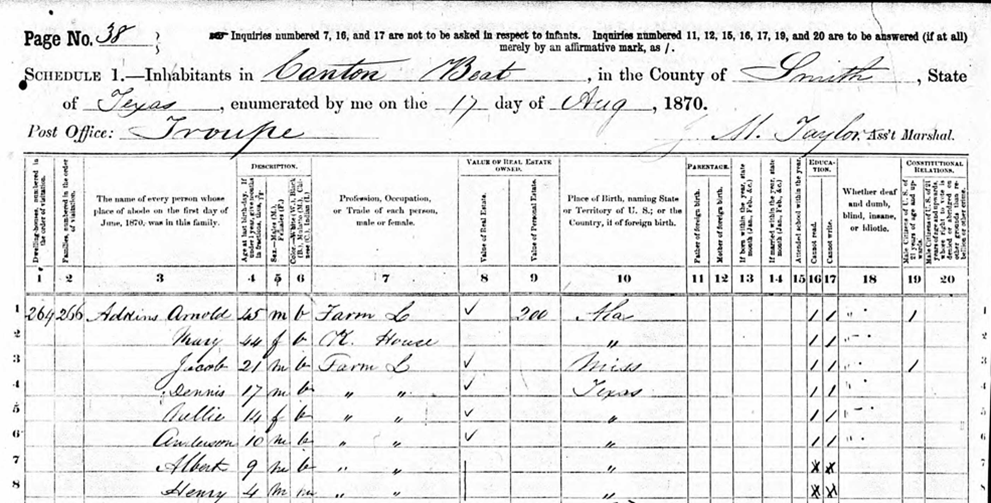 Page No. 38
Inquiries numbered 7, 16, and 17 are not to be asked in respect to infants. Inquiries numbered 11, 12, 15, 16, 17, 19, and 20 are to be answered (if at all) merely by an affirmative mark, as /.
SCHEDULE 1.—Inhabitants in Canton Beat, in the County of Smith, State
of Texas, enumerated by me on the 17 day of Aug, 1870.
Post Office: Troupe
M. Taylor, Ass't Marshal.
DESCRIPTION.
VALUE OF REAL ESTATE OWNED.
PARENTAGE.
EDUCATION.
CONSTITUTIONAL RELATIONS.
Dwelling-houses, numbered in the order of visitation.
Families, numbered in the order of visitation.
The name of every person whose place of abode on the first day of June, 1870, was in this family.
Age at last birth-day. If under 1 year, give months in fractions, thus,
Sex.—Males (M.), Females (F.)
Color.—White (W.), Black (B.), Mulatto (M.), Chinese (C.), Indian (I.)
Profession, Occupation, or Trade of each person, male or female.
Value of Real Estate.
Value of Personal Estate.
Place of Birth, naming State or Territory of U. S.; or the Country, if of foreign birth.
Father of foreign birth.
Mother of foreign birth.
If born within the year, state month (Jan., Feb., &c.)
If married within the year, state month (Jan., Feb., &c.)
Attended school within the year.
Cannot read.
Cannot write.
Whether deaf and dumb, blind, insane, or idiotic.
Male Citizens of U. S. of 21 years of age and upwards.
Male Citizens of U. S. of 21 years of age and upwards, where right to vote is denied or abridged on other grounds than rebellion or other crime.
1 2 3 4 5 6 7 8 9 10 11 12 13 14 15 16 17 18 19 20
1 264 266 Adkins Arnold 45 m b Farm L ✓ 200 Ala / / " " / 1
2 Mary 44 f b K. House " / / " " 2
3 Jacob 21 m b Farm L ✓ Miss / / " " / 3
4 Dennis 17 m b " " ✓ Texas / / " " 4
5 14 f b " " ✓ " / / " " 5
6 Anderson 10 m b " " ✓ " / / " " 6
7 Albert 9 m b " " " X X 7
8 Henry 4 m " " " X X 8